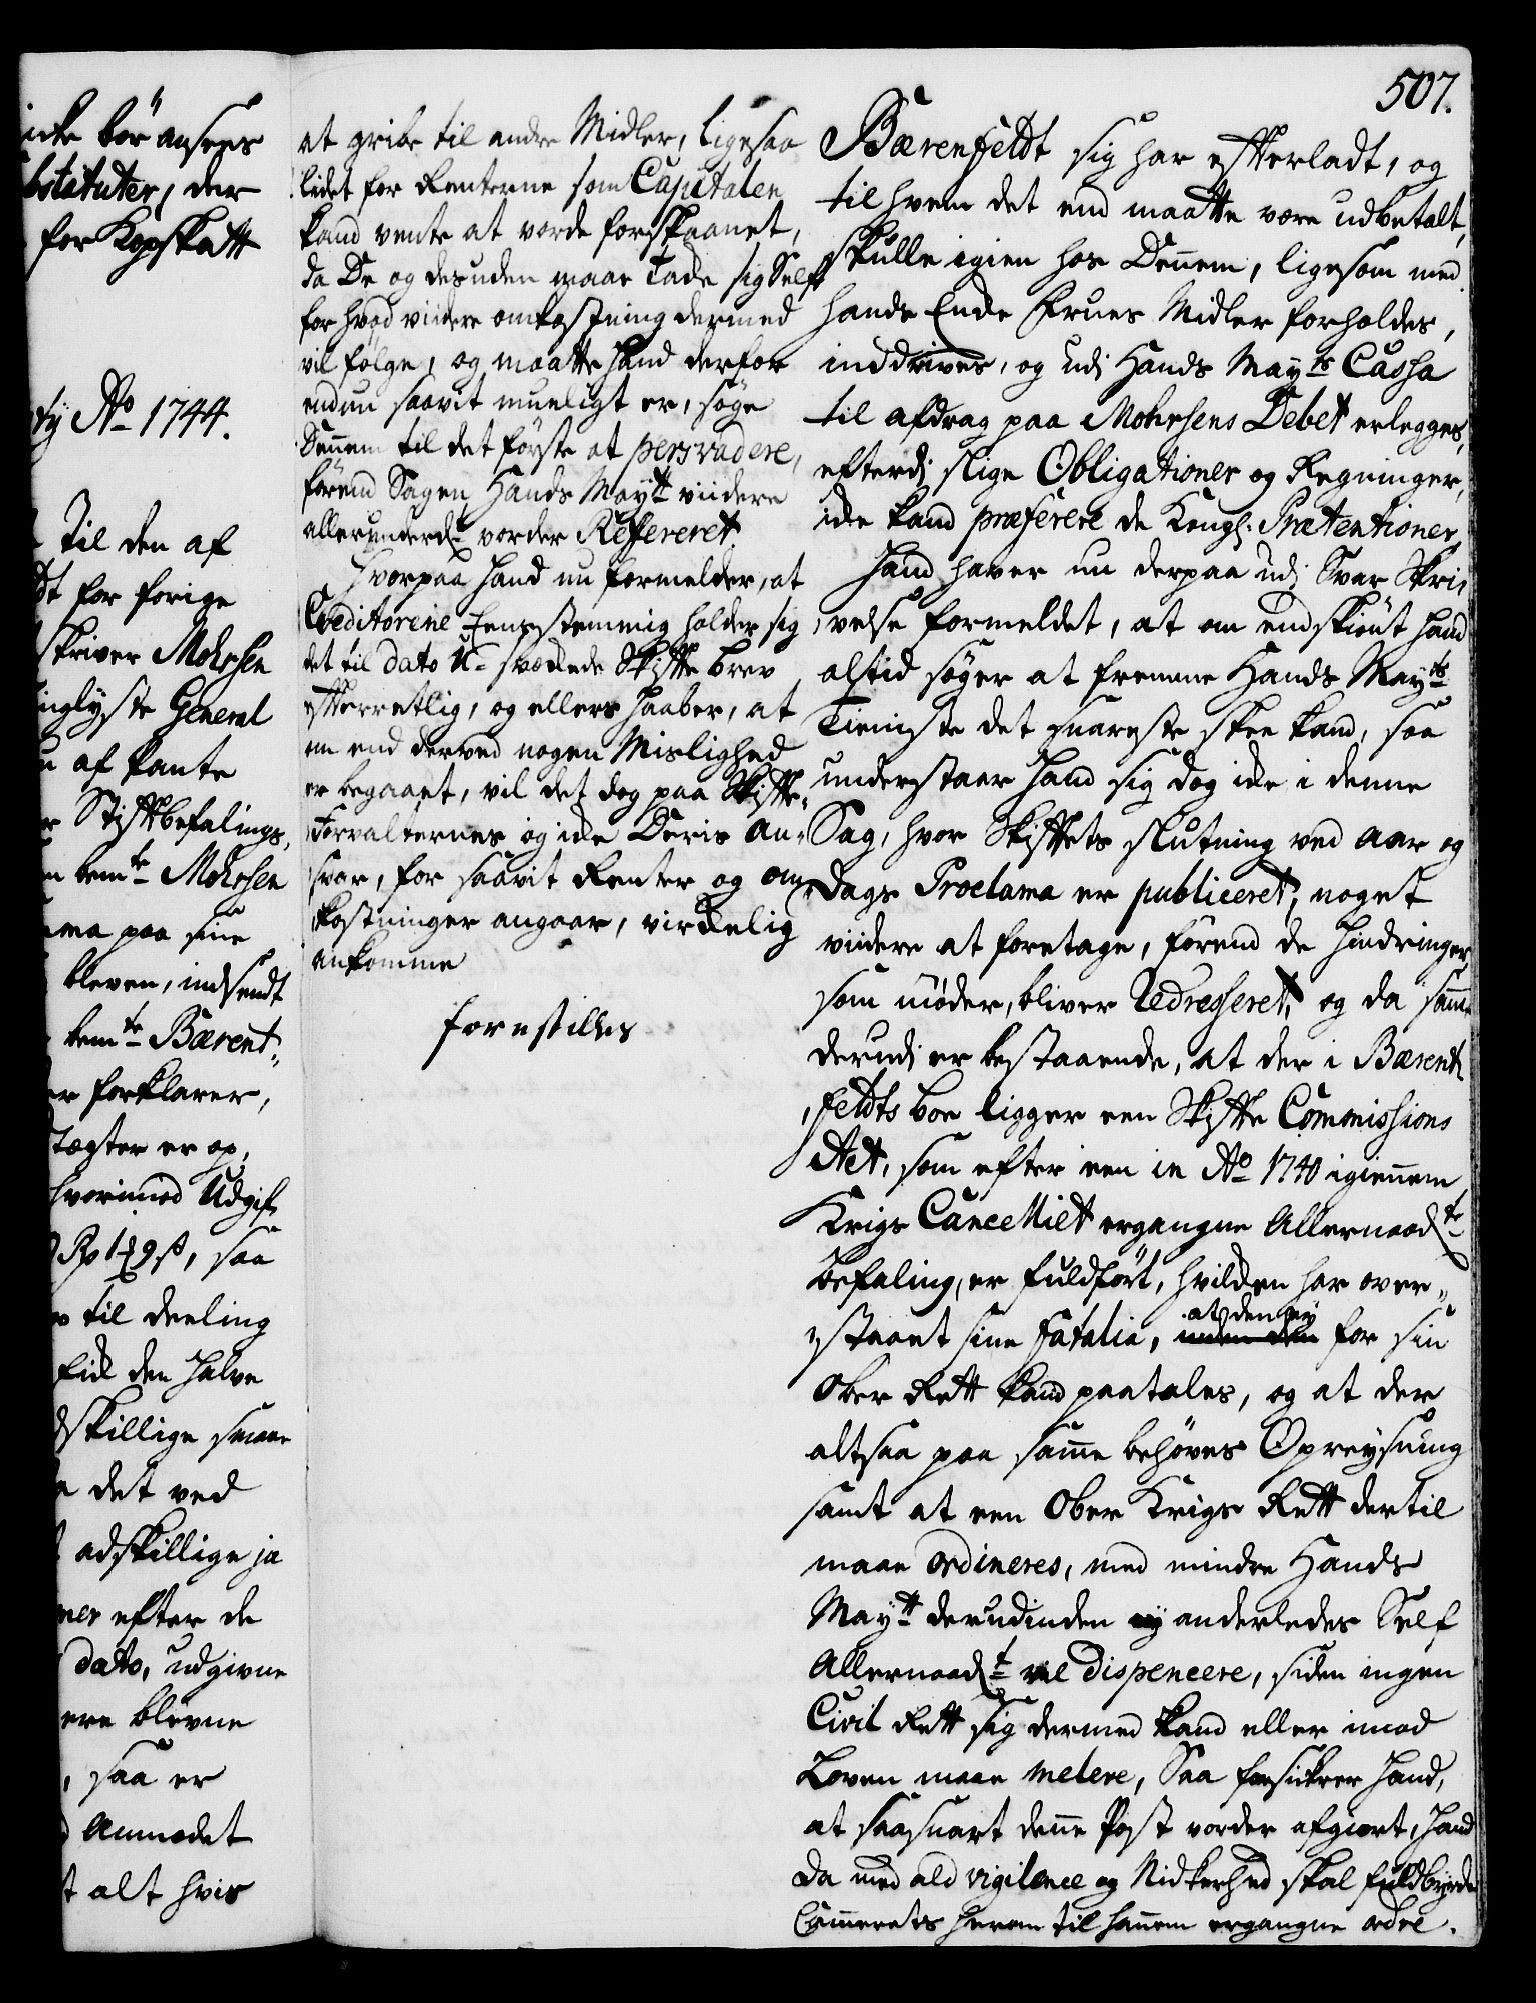 507.
icke bör ansees
bstituter, der
for Kopskatt
ty Ao 1744.
til den af
dt for forige
skriver Mohrsen
inglyste General
af kante
Stiftbefalings
bemte Mohrsen
ma paa sine
bleven, indsendt
bemte Bærent
er forklarer,
tægter er op
hvorimod Udgif
saa
til deeling
fik den halve
dskillige smaae
det ved
adskillige ja
ner efter de
dato, udgivne
ere blevne
, saa er
Anmodet
alt hvis
at gribe til andre Midler, ligesaa
lidet for Renterne som Capitalen
kand vente at vorde forskaanet,
da De og desuden maae Tade sig Self
for hvad viidere omkostning dermed
vil følge, og maatte hand derfor
endnu saavit mueligt er, søge
Dennem til det første at persvadere,
førend Sagen Hands Maytt viidere
allerunderd. vorder Refereret
Hvorpaa hand nu formelder, at
Creditorene Eensstemmig holder sig
det til dato uswækkede Skifte brev
efterretlig, og ellers haaber, at
om end derved nogen Mislighed
er begaaet, vil det dog paa Skifte-
forvalternes og icke Deris An-
svar, for saavit Renter og om
kostninger angaar, virkelig
ankomme
forestilles
Bærenfeldt sig har efterladt, og
til hvem det end maatte være udbetalt,
skulle igien hos Dennem, ligesom med
hands Ende Frues Midler forholdes,
inddrives, og udj Hands Mayts Cassa
til afdrag paa Mohrsens Debet erlegges,
efterdj slige Obligationer og Regninger,
icke kand præferere de Kongl: Prætentioner,
Hand haver nu derpaa udj Svar Skri,
,velse formeldet, at om endskiønt hand
altid søger at fremme Hands Mayts
Tieniste det snareste skee kand, saa
understaar hand sig dog icke i denne
Sag, hvor Skiftets slutning ved Aar og
Dags Proclama er publiceret, noget
viidere at foretage, førend de hindringer
som møder, bliver Redresseret, og da samme
derudj er bestaaende, at der i Bærent
,feldts boe ligger een Skifte Commissions
Act, som efter een in Ao 1740 igiennem
Krigs Cancelliet ergangne Allernaadte
Befaling, er fuldført, hvilcken har over-
staaet sine Fatalia, at den ey for sin
Ober Rett kand paatales, og at der
altsaa paa samme behøves Opreysning
samt at een Ober Krigs Rett dertil
maae ordineres, med mindre Hands
Maytt derudinden anderledes Self
Allernaadt vil dispencere, siden ingen
Civil Rett sig dermed kand eller imod
Loven maae melere, Saa forsikrer hand,
at saasnart denne Post vorder afgiort, Hand
da med ald vigilence og Nidkerhed skal fuldbyrde
Cammerets herom til hannem ergangne ordre.